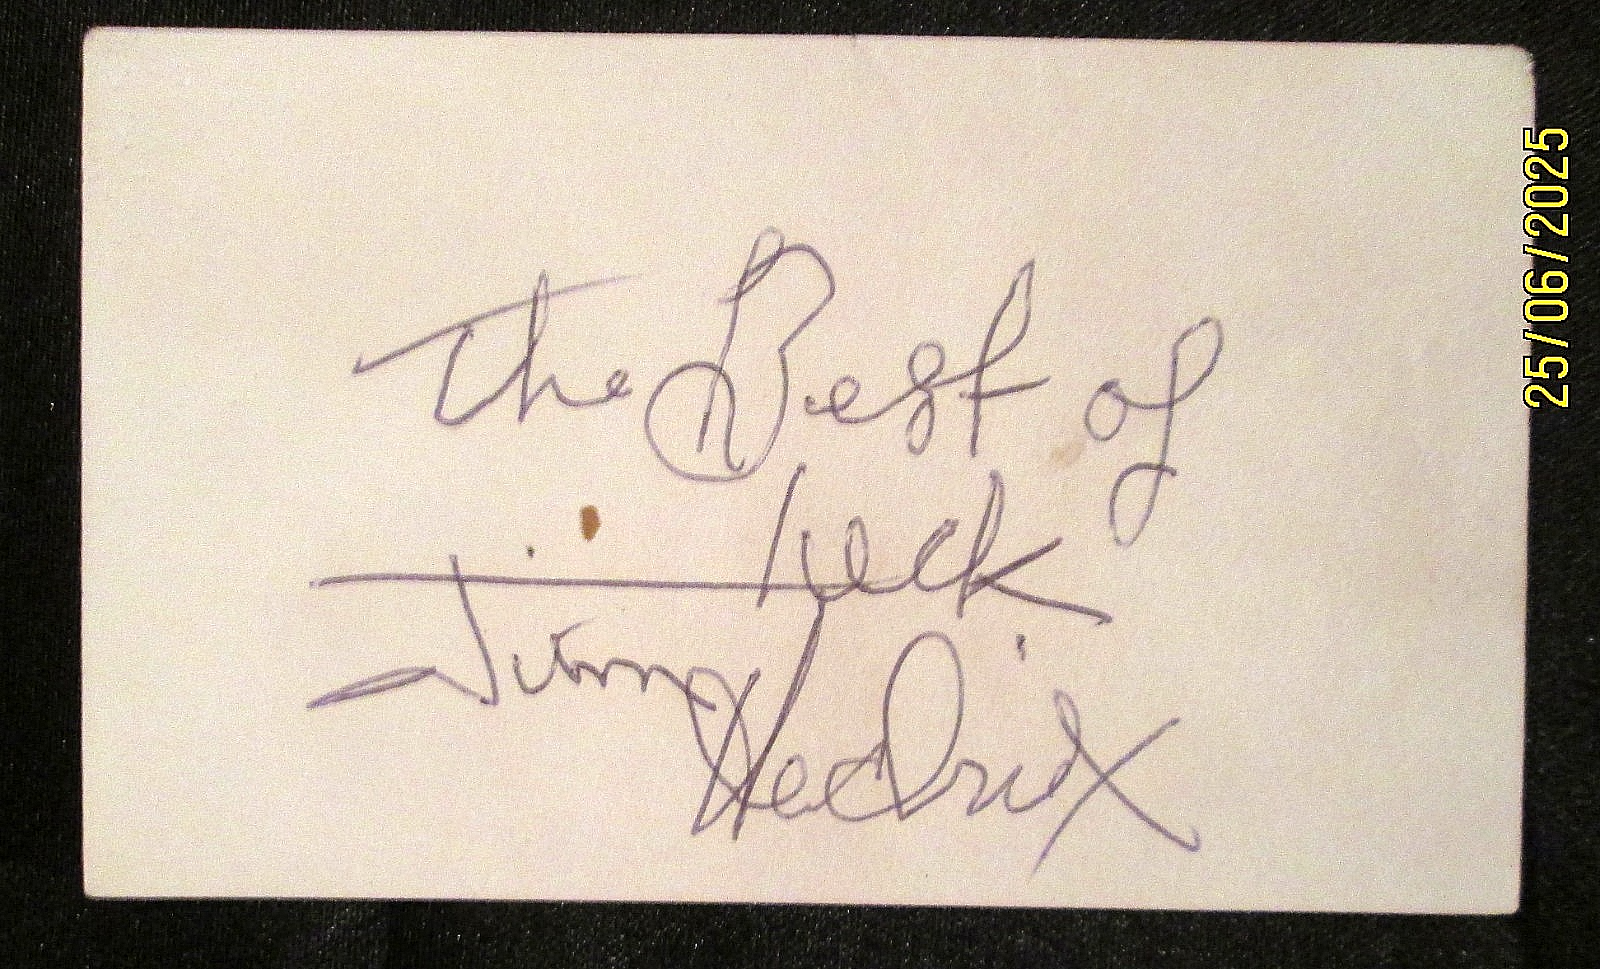 The Best of
luck
Jimmy
Hedrix
25/06/2025